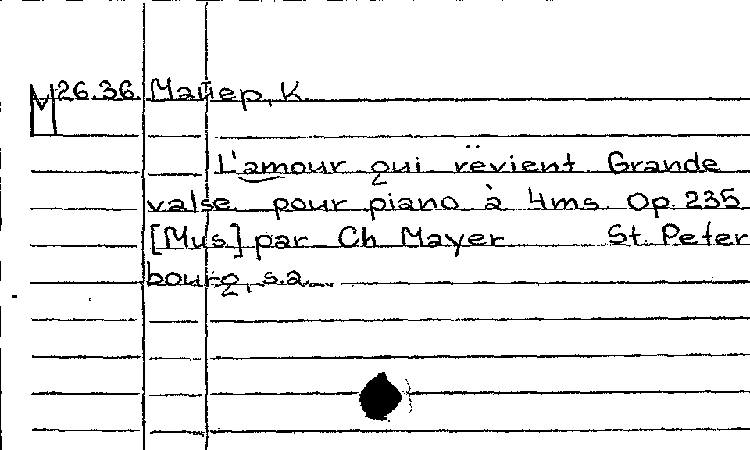 М26.36 Майер, К.
L'amour qui rëvient Grande
valse pour piano à 4ms. Op. 235
[Mus] par Ch Mayer St. Peter
bourg, s.a.